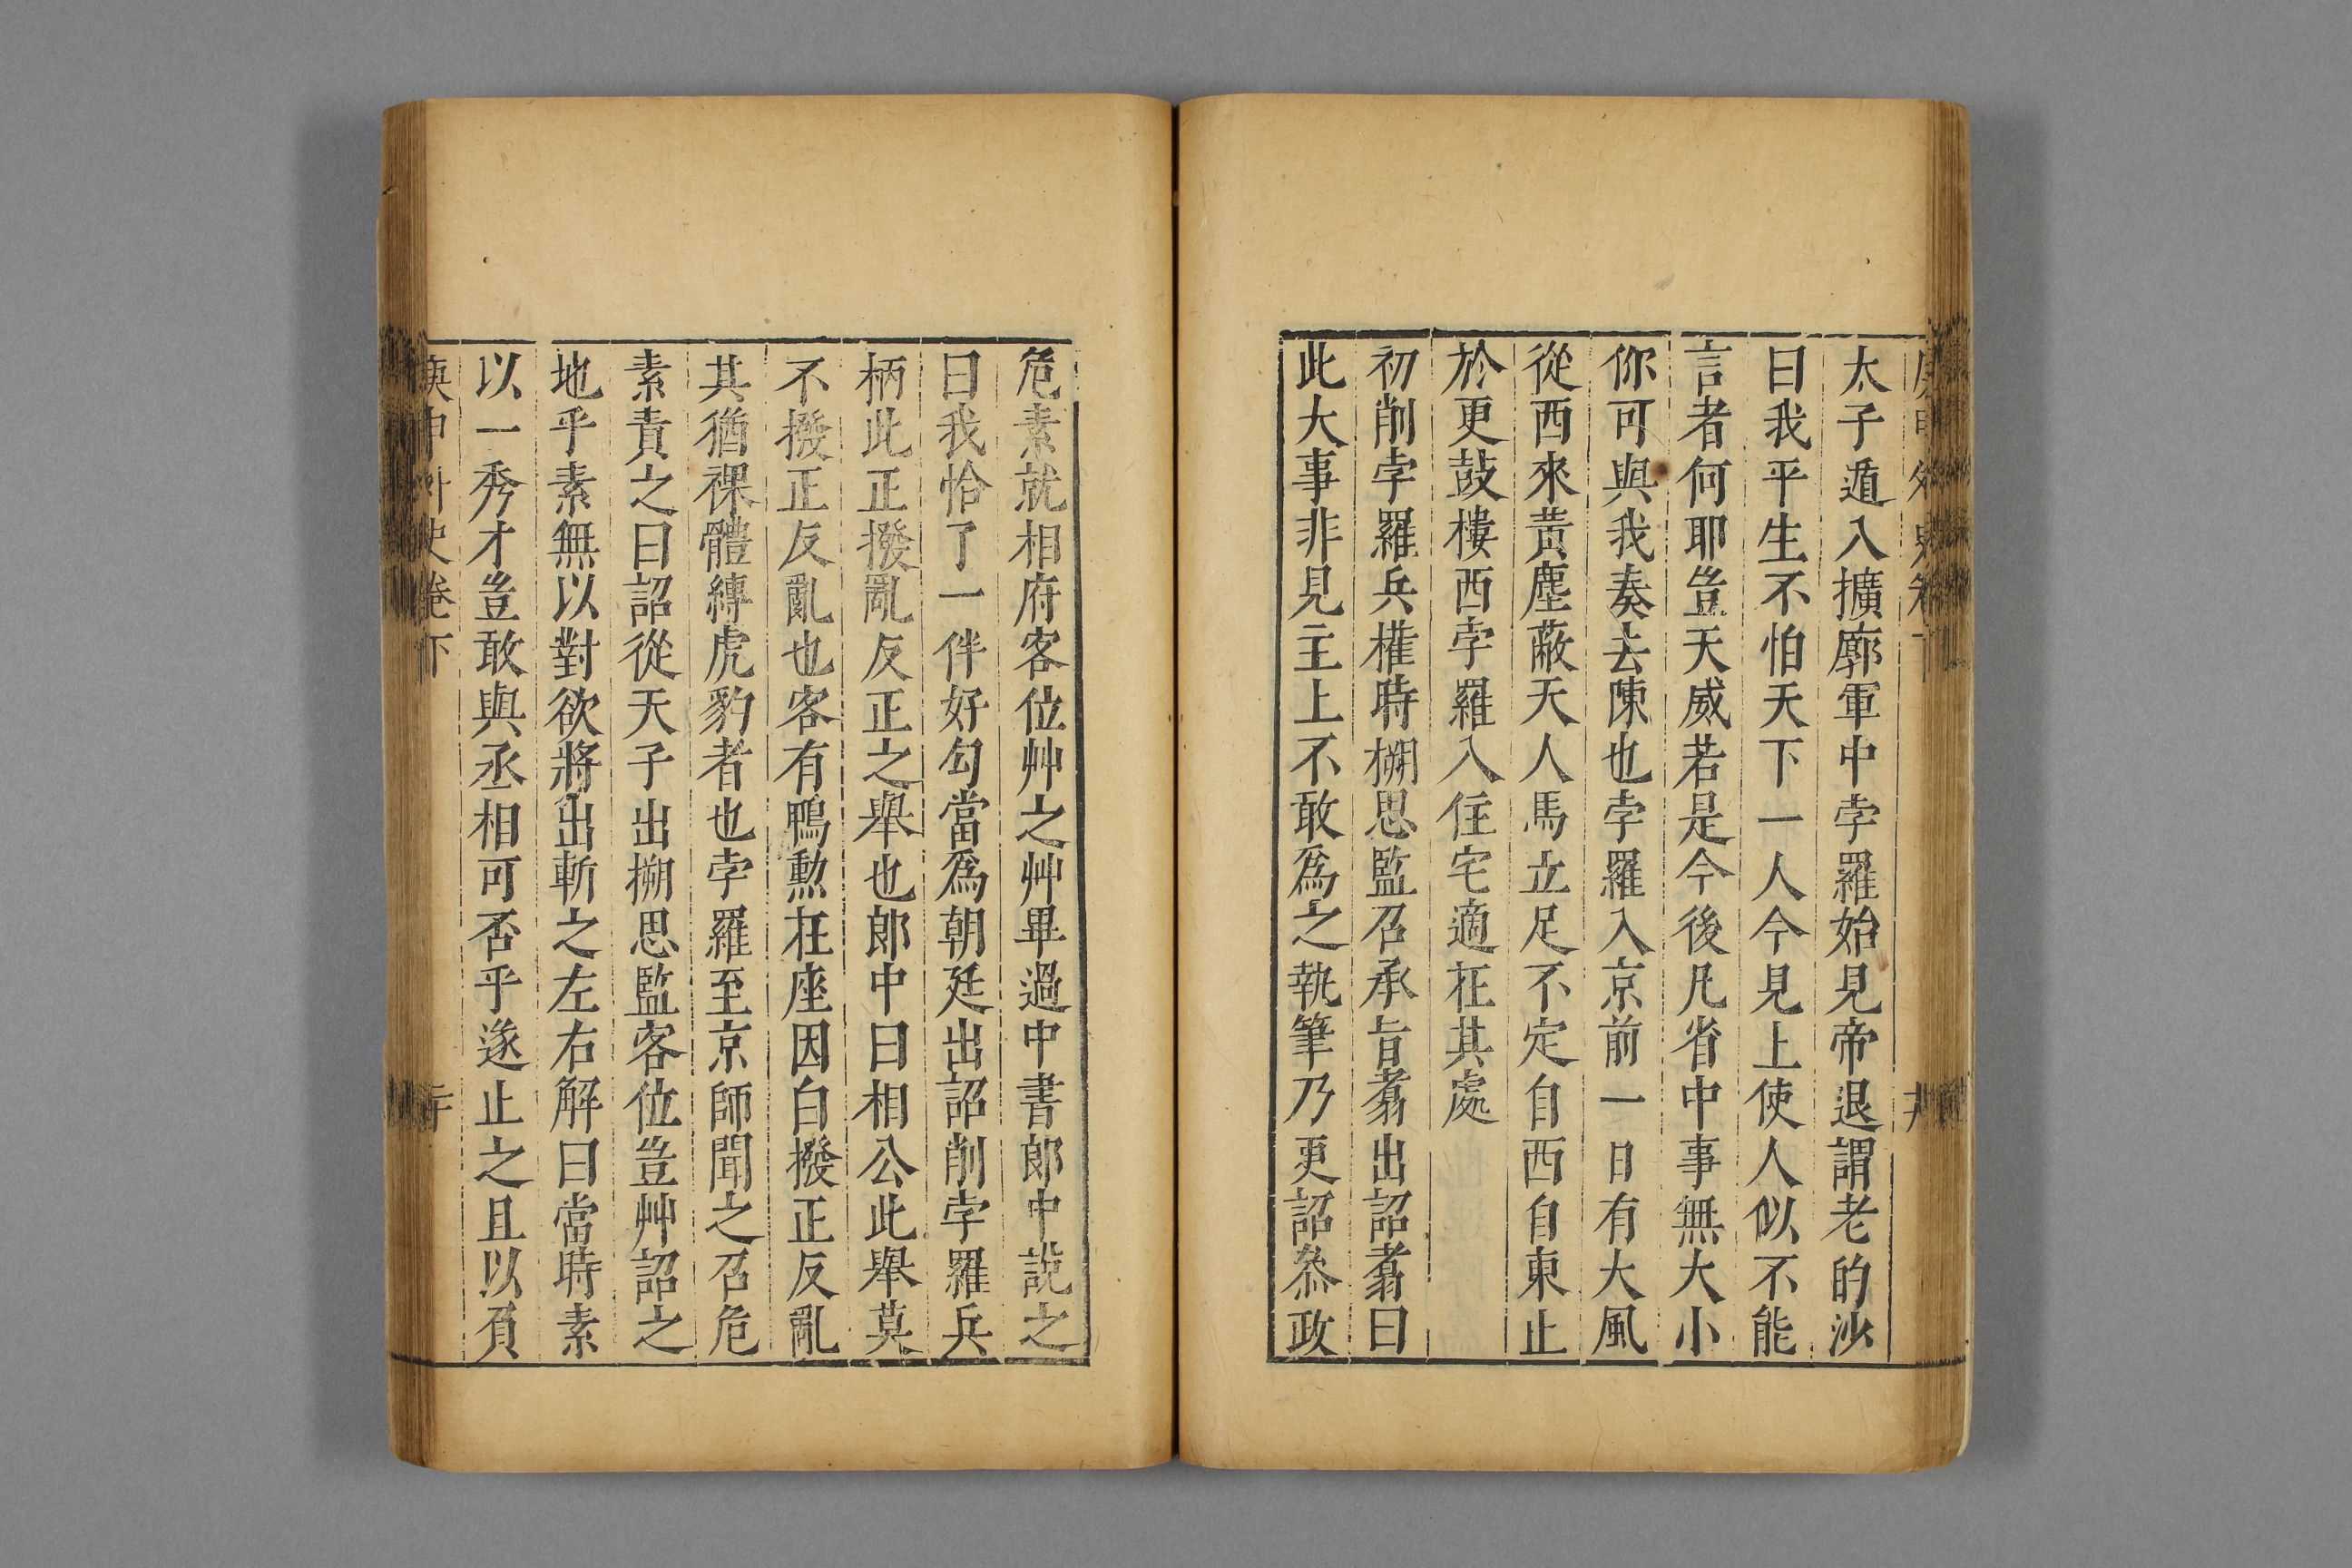 太子遁入擴廓軍中孛羅始見帝退謂老的沙
曰我平生不怕天下一人今見上使人似不能
言者何耶豈天威若是今後凡省中事無大小
你可與我奏去陳也孛羅入京前一日有大風
從西來黃塵蔽天人馬立足不定自西自東止
於更鼓樓西孛羅入住宅適在其處
初削孛羅兵權時搠思監召承旨翥出詔翥曰
此大事非見主上不敢爲之執筆乃更詔叅政
危素就相府客位艸之艸畢過中書郎中說之
曰我恰了一件好勾當爲朝廷出詔削孛羅兵
柄此正撥亂反正之舉也郎中曰相公此舉莫
不撥正反亂也客有鴨勲在座因白撥正反亂
其猶裸體縛虎豹者也孛羅至京師聞之召危
素責之曰詔從天子出搠思監客位豈艸詔之
地乎素無以對欲將出斬之左右解曰當時素
以一秀才豈敢與丞相可否乎遂止之且以負
庚申外史卷下